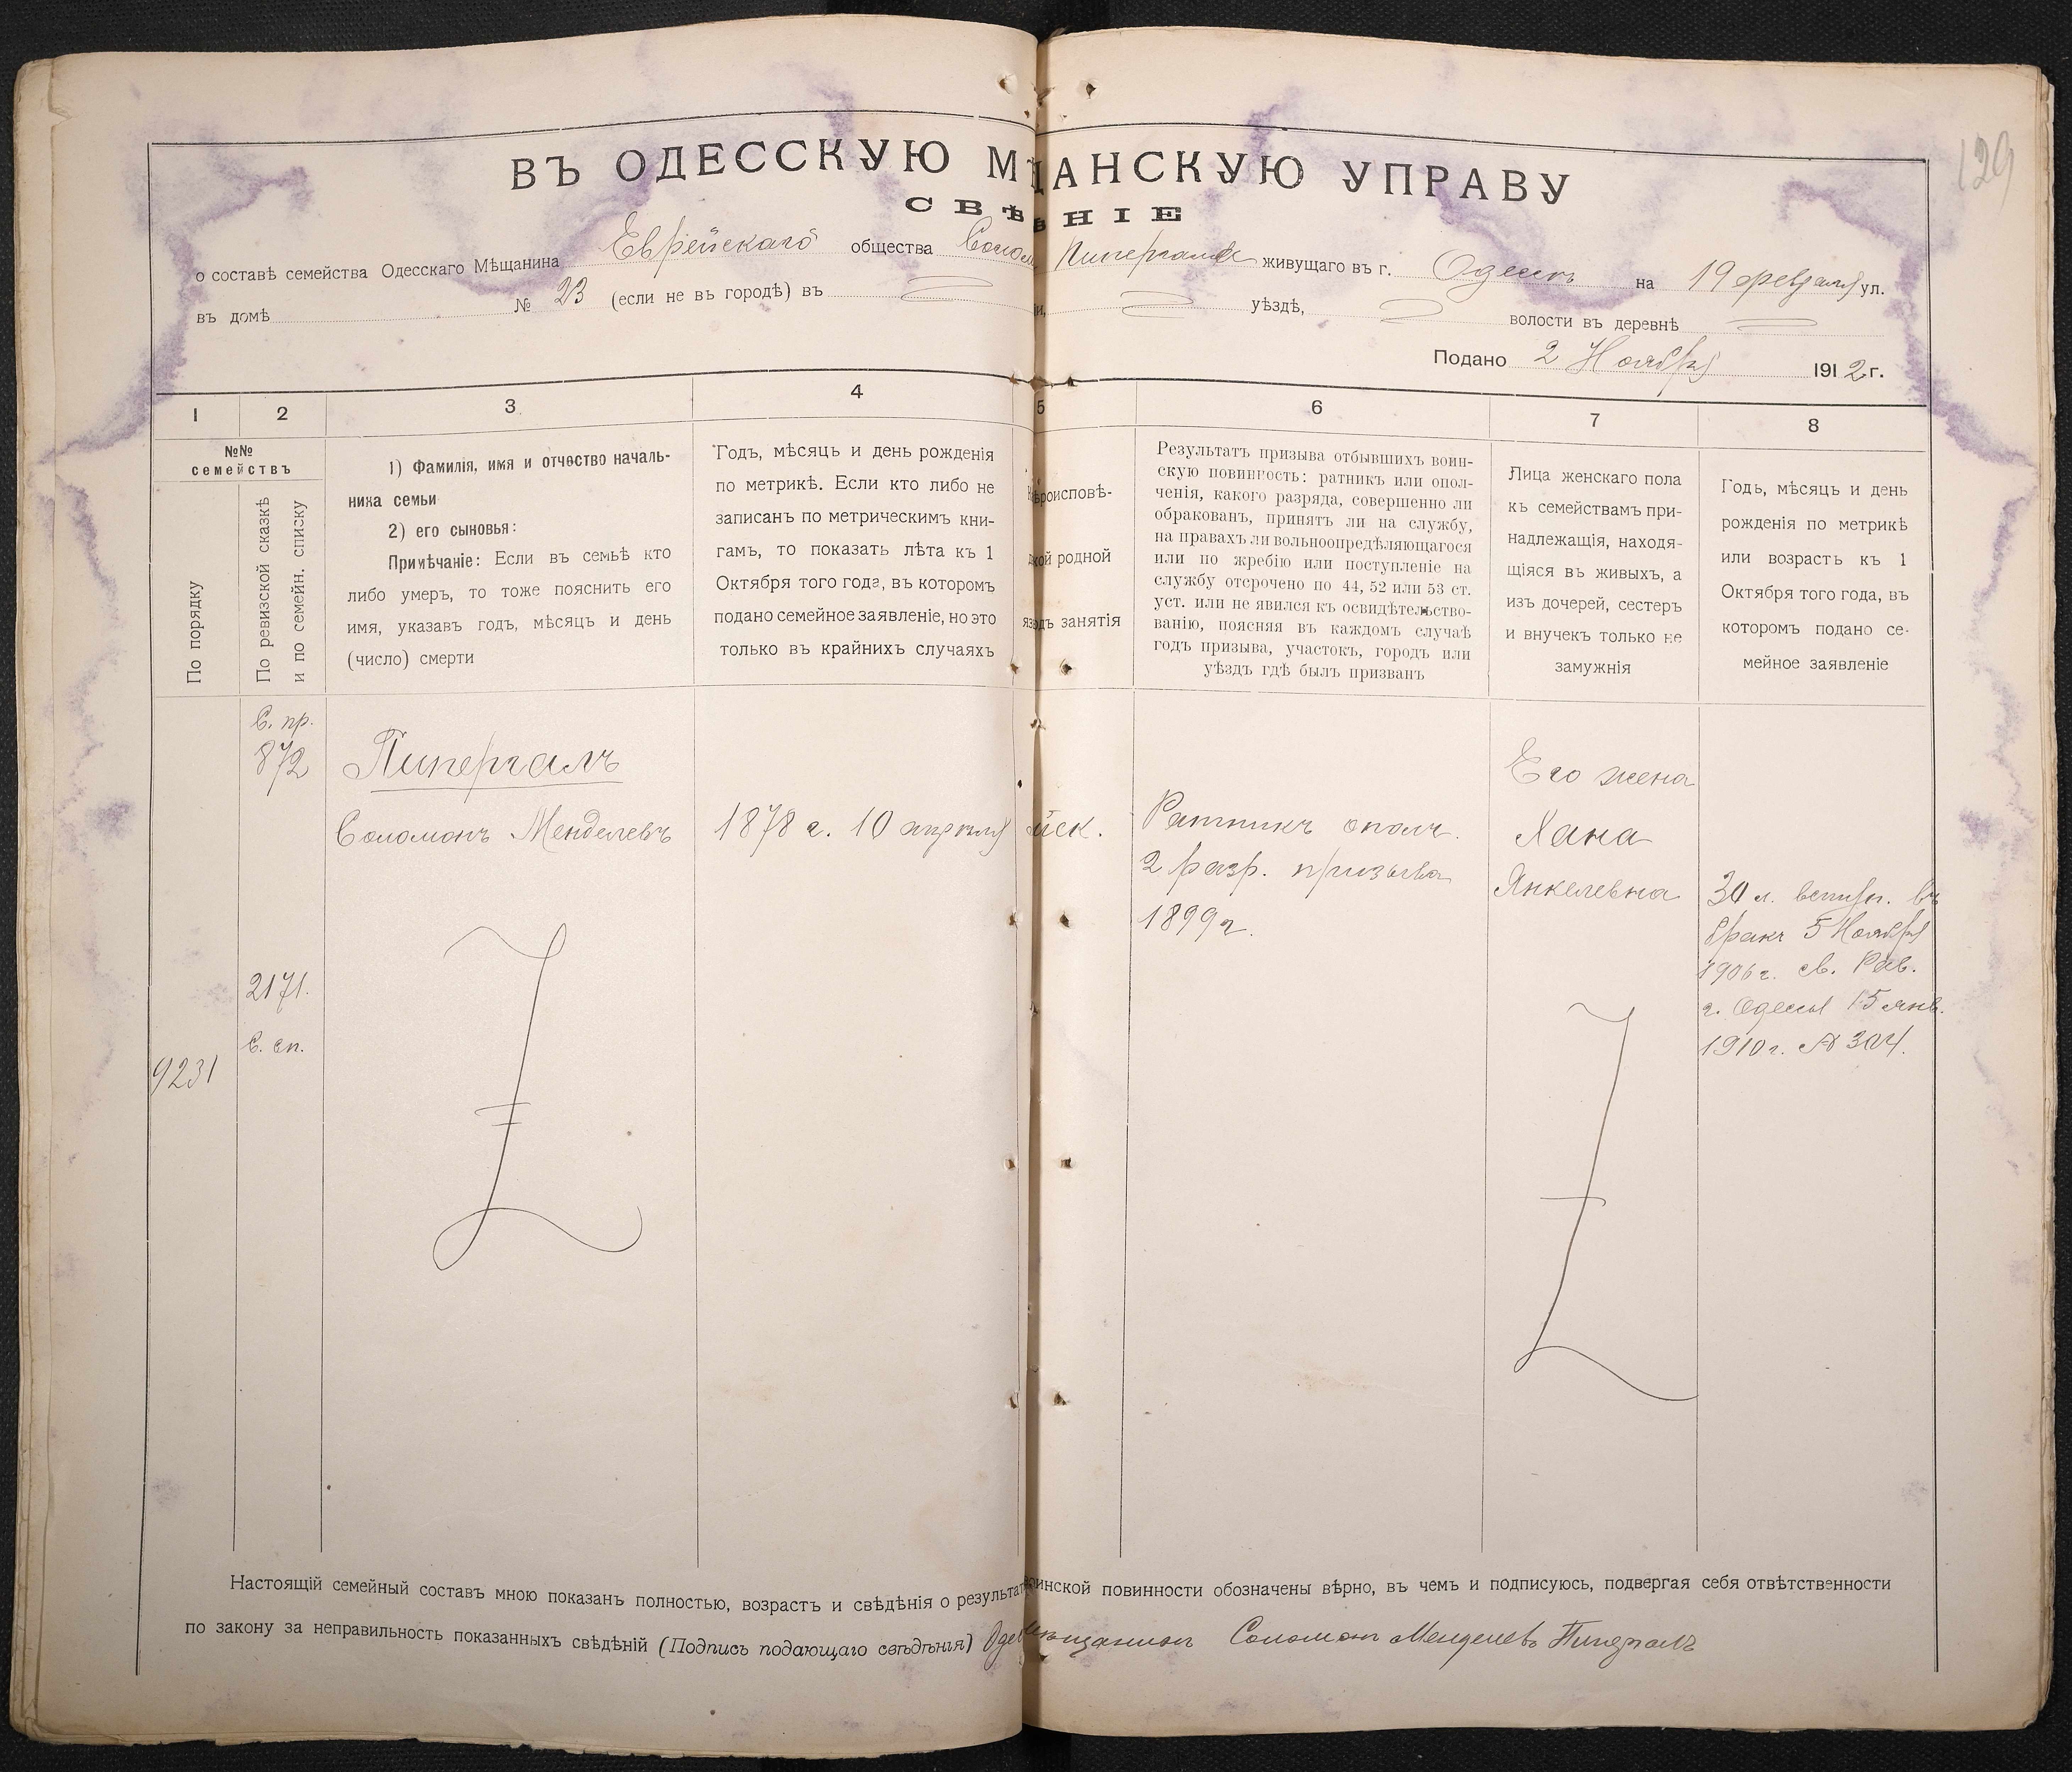 129
ВЪ ОДЕССКУЮ М ЩАНСКУЮ УПРАВУ
СВѢ НІЕ
о составѣ семейства Одесскаго Мѣщанина Еврейскаго общества Солом Пипергаля живущаго въ г. Одессѣ на 19 февраля ул.
въ домѣ № 23 (если не въ городѣ) въ и, уѣздѣ, волости въ деревнѣ
Подано 2 Ноября 1912 г.
1 2 3 4 5 6 7 8
№№
семействъ
По порядку
По ревизской сказкѣ
и по семейн. списку
1) Фамилія, имя и отчество началь-
ника семьи
2) его сыновья:
Примѣчаніе: Если въ семьѣ кто
либо умеръ, то тоже пояснить его
имя, указавъ годъ, мѣсяцъ и день
(число) смерти
Годъ, мѣсяцъ и день рожденія
по метрикѣ. Если кто либо не
записанъ по метрическимъ кни-
гамъ, то показать лѣта къ 1
Октября того года, въ которомъ
подано семейное заявленіе, но это
только въ крайнихъ случаяхъ
ѣроисповѣ-
кой родной
яз одъ занятія
Результатъ призыва отбывшихъ воин-
скую повинность: ратникъ или опол-
ченія, какого разряда, совершенно ли
обракованъ, принятъ ли на службу,
на правахъ ли вольноопредѣляющагося
или по жребію или поступленіе на
службу отсрочено по 44, 52 или 53 ст.
уст. или не явился къ освидѣтельство-
ванію, поясняя въ каждомъ случаѣ
годъ призыва, участокъ, городъ или
уѣздъ гдѣ былъ призванъ
Лица женскаго пола
къ семействамъ при-
надлежащія, находя-
щіяся въ живыхъ, а
изъ дочерей, сестеръ
и внучекъ только не
замужнія
Годъ, мѣсяцъ и день
рожденія по метрикѣ
или возрасть къ 1
Октября того года, въ
которомъ подано се-
мейное заявленіе
9231
С. пр.
872
2171.
С. сп.
Пипергалъ
Соломонъ Менделевъ
1878 г. 10 апрѣля
йск.
Ратникъ ополч.
2 разр. призыва
1899 г.
Его жена
Хана
Янкелевна
30 л. вступ. въ
бракъ 5 Ноября
1906 г. св. Рав.
г. Одессы 15 янв.
1910 г. № 304.
Настоящій семейный составъ мною показанъ полностью, возрастъ и свѣдѣнія о результат оинской повинности обозначены вѣрно, въ чемъ и подписуюсь, подвергая себя отвѣтственности
по закону за неправильность показанныхъ свѣдѣній (Подпись подающаго свѣдѣнія) Одес мѣщанинъ Соломонъ Менделевъ Пипергалъ